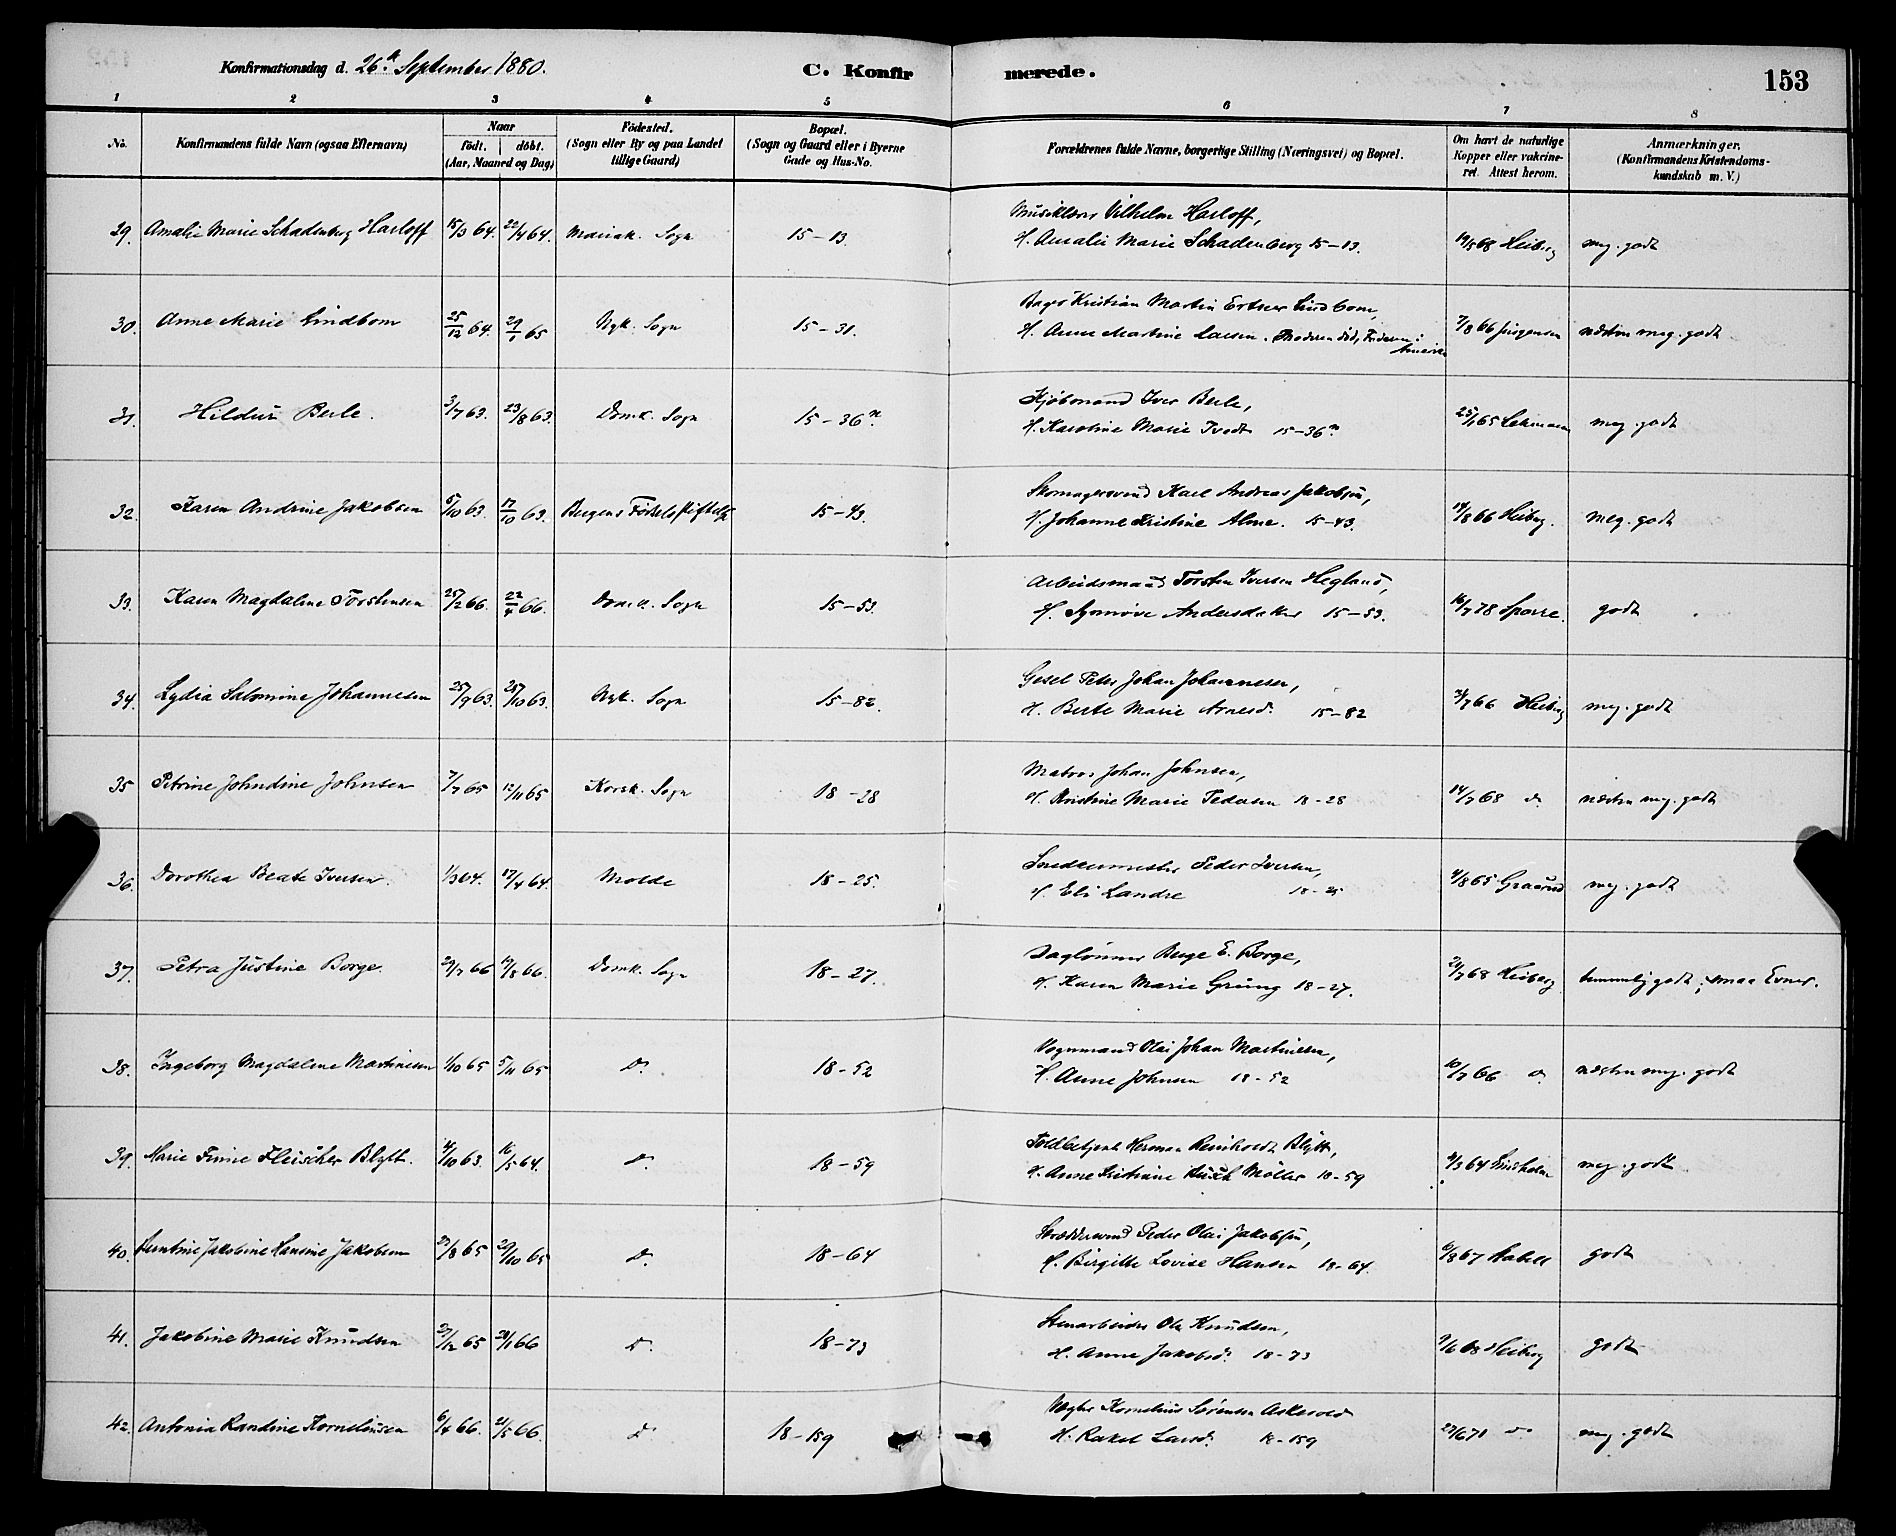 Konfirmationsdag d. 26de September 1880.
C. Konfirmerede.
153
1 2 3 4 5 6 7 8
No.
Konfirmandens fulde Navn (ogsaa Efternavn)
Naar
født. døbt.
(Aar, Maaned og Dag)
Fødested.
(Sogn eller By og paa Landet
tillige Gaard)
Bopæl.
(Sogn og Gaard eller i Byerne
Gade og Hus-No.
Forældrenes fulde Navne, borgerlige Stilling (Næringsvei) og Bopæl.
Om havt de naturlige
Kopper eller vakcine-
ret. Attest herom.
Anmærkninger.
(Konfirmandens Kristendoms-
kundskab m. V.)
Musiklærer Vilhelm Harloff,
29. Amalie Marie Schadenberg Harloff 15/3 64. 22/4 64. Mariak. Sogn 15-13. H. Amalie Marie Schadenberg 15-13. 19/5 68 Heiberg meg. godt
Bager Kristian Martin Ertner Lindbom,
30. Anne Marie Lindbom 25/12 64. 29/1 65 Nyk. Sogn 15-31. H. Anne Martine Larsen. Moderen död, Faderen i Amerika 7/8 66 Jürgensen næsten meg. godt
Kjøbmand Iver Berle,
31. Hildur Berle. 3/7 63. 23/8 63. Domk. Sogn 15-36 H. Karoline Marie Tvedt 15-36 25/1 65 Lehmann meg. godt
Skomagersvend Karl Andreas Jakobsen,
32. Karen Andrine Jakobsen 5/10 63. 17/10 63. Bergens Födselsstiftelse 15-43. H. Johanne Kristine Alme. 15-43. 14/8 66 Heiberg. meg. godt
Arbeidsmand Torsten Iversen Hegland,
33. Karen Magdalene Torstensen 25/2 66. 22/4 66. Domk. Sogn 15-53. H. Synnöve Andersdatter 15-53. 16/7 78 Sparre. godt
Gesel Peter Johan Johannesen,
34. Lydia Salomine Johannesen 25/9 63. 25/10 63. Nyk. Sogn 15-82. H. Berte Marie Arnesd. 15-82 3/7 66 Heiberg meg. godt
Matros Johan Johnsen,
35 Petrine Johndine Johnsen 7/7 65 12/11 65 Korsk. Sogn 18-28 H. Kristine Marie Pedersen 18-28 14/7 68 do næsten meg. godt
Snedkermester Peder Iversen,
36. Dorothea Beate Iversen. 1/3 64. 17/4 64. Molde 18-25. H. Eli Landre 18-25 4/8 65 Graarud meg. godt
Daglönner Berge E. Borge,
37. Petra Justine Borge. 29/7 66 19/8 66. Domk. Sogn 18-27. H. Karen Marie Grung 18-27. 21/7 68 Heiberg temmelig godt; smaa Evner.
Vognmand Olai Johan Martinesen,
38. Ingeborg Magdalene Martinesen 1/10 65 5/11 65 Do 18-52 H. Anne Johnsen 18-52 10/7 66 do næsten meg. godt
Toldbetjent Herman Reinholdt Blytt,
39. Marie Finnie Fleischer Blytt. 4/10 63. 16/5 64. Do 18-59 H. Anne Kristiane Busch Möller 18-59 9/3 64 Lindholm meg. godt.
Skræddersvend Peder Olai Jakobsen,
40. Jakobine Hansine Jakobsen 23/8 65 29/10 65 Do 18-64 H. Birgitte Lovise Hansen 18-64. 6/8 67 godt
Stenarbeider Ole Knudsen,
41. Jakobine Marie Knudsen 27/12 65 28/1 66 Do 18-73 H. Anne Jakobsd. 18-73 9/6 68 Heiberg godt
Kornelius Sörensen Askevold
42. Antonia Randine Kornelius­sen 6/4 66. 21/5 66. Do 18-159 H. Rakel Larsd. 18-159 27/6 71 do meg. godt